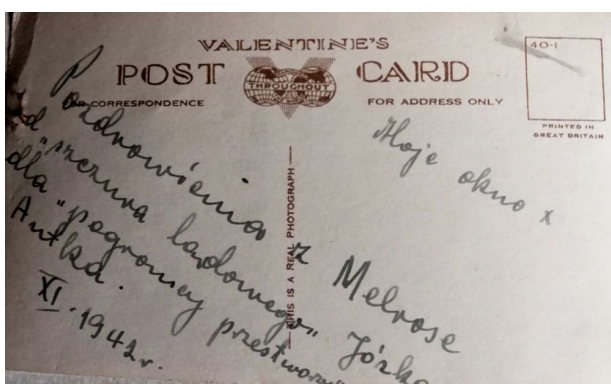 VALENTINE'S
POST CARD
THROUGHOUT
FOR CORRESPONDENCE
FOR ADDRESS ONLY
40-1
PRINTED IN
GREAT BRITAIN
THIS IS A REAL PHOTOGRAPH
Pozdrowienia z Melrose
od "szczura lądowego" Józka
dla "pogromcy przestworzy"
Antka.
XI. 1942r.
Moje okno x